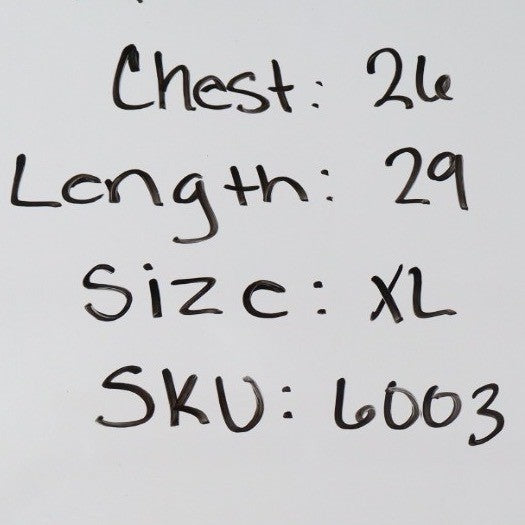 Chest: 26
Length: 29
Size: XL
SKU: 6003